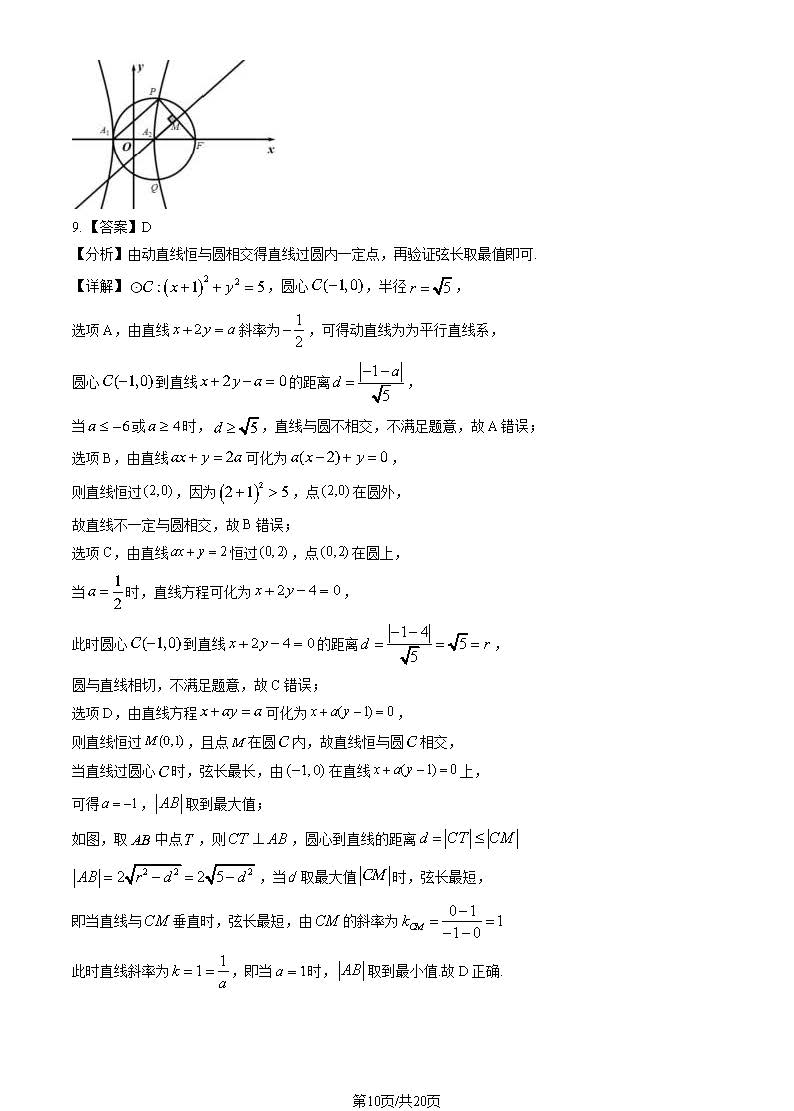 y
P
M
A₁
O
A₂
F
x
Q
9. 【答案】D
【分析】由动直线恒与圆相交得直线过圆内一定点，再验证弦长取最值即可.
【详解】⊙C:(x+1)²+y²=5，圆心C(−1,0)，半径r=√5，
选项 A，由直线x+2y=a斜率为−1/2，可得动直线为为平行直线系，
圆心C(−1,0)到直线x+2y−a=0的距离d=|−1−a|/√5，
当a≤−6或a≥4时，d≥√5，直线与圆不相交，不满足题意，故 A 错误；
选项 B，由直线ax+y=2a可化为a(x−2)+y=0，
则直线恒过(2,0)，因为(2+1)²>5，点(2,0)在圆外，
故直线不一定与圆相交，故 B 错误；
选项 C，由直线ax+y=2恒过(0,2)，点(0,2)在圆上，
当a=1/2时，直线方程可化为x+2y−4=0，
此时圆心C(−1,0)到直线x+2y−4=0的距离d=|−1−4|/√5=√5=r，
圆与直线相切，不满足题意，故 C 错误；
选项 D，由直线方程x+ay=a可化为x+a(y−1)=0，
则直线恒过M(0,1)，且点M在圆C内，故直线恒与圆C相交，
当直线过圆心C时，弦长最长，由(−1,0)在直线x+a(y−1)=0上，
可得a=−1，|AB|取到最大值；
如图，取AB中点T，则CT⊥AB，圆心到直线的距离d=|CT|≤|CM|
|AB|=2√(r²−d²)=2√(5−d²)，当d取最大值|CM|时，弦长最短，
即当直线与CM垂直时，弦长最短，由CM的斜率为k_CM=(0−1)/(−1−0)=1
此时直线斜率为k=1=1/a，即当a=1时，|AB|取到最小值.故 D 正确.
第10页/共20页